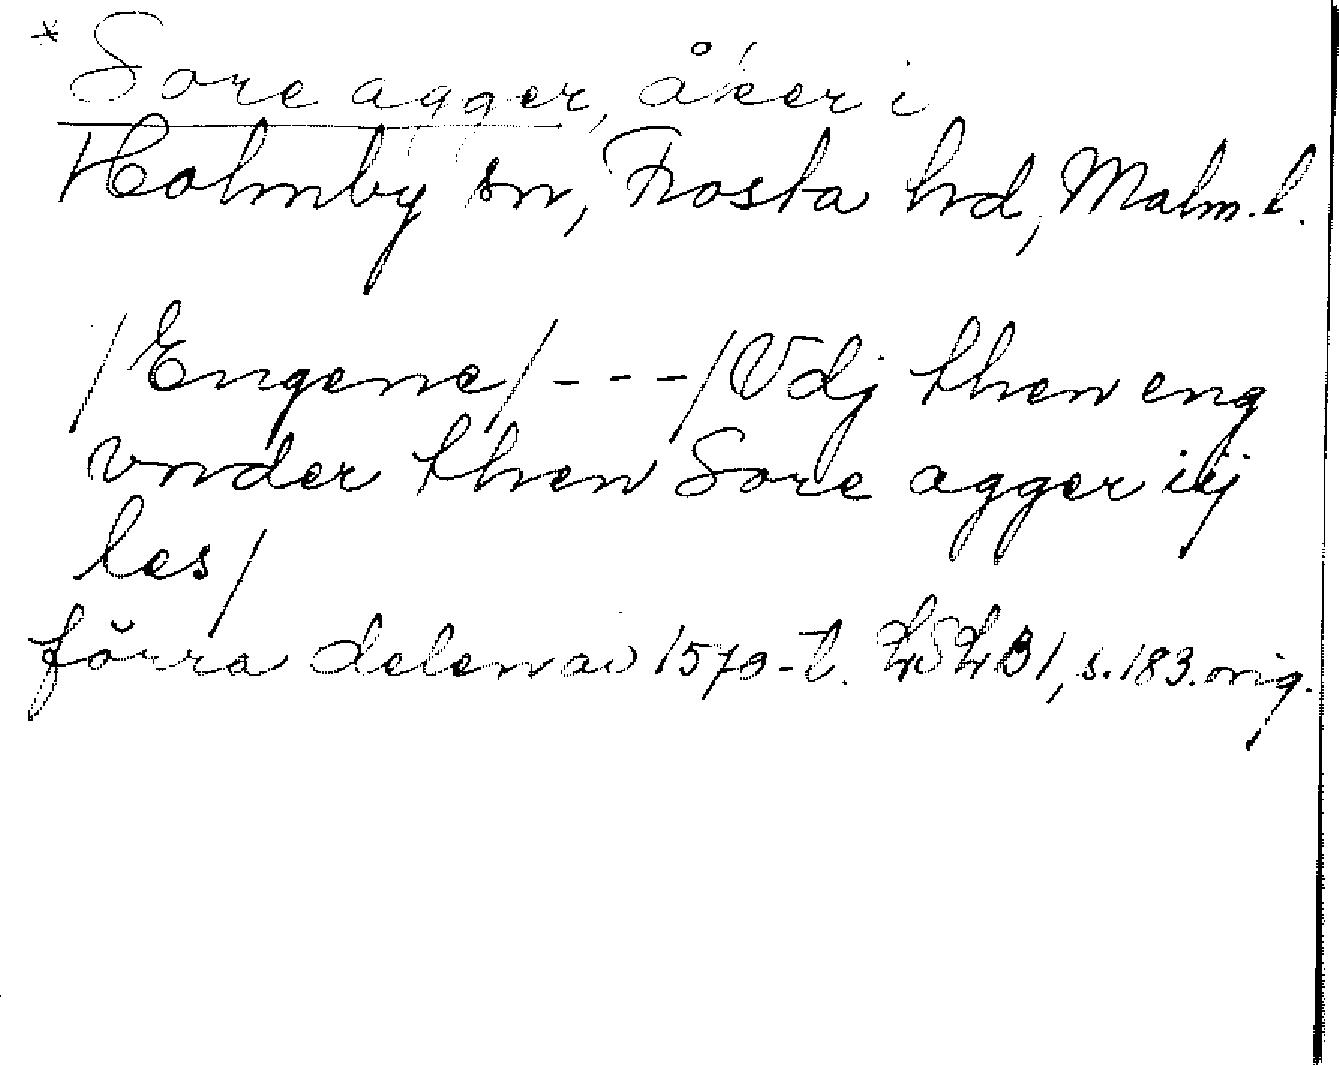 * Sore agger, åker i
Holmby sn, Frosta hd, Malm. l.
/Engene/ - - - /Vdj then eng
vnder then Sore agger iij
les/
förra delen av 1570-t. LSLB1, s. 183. orig.